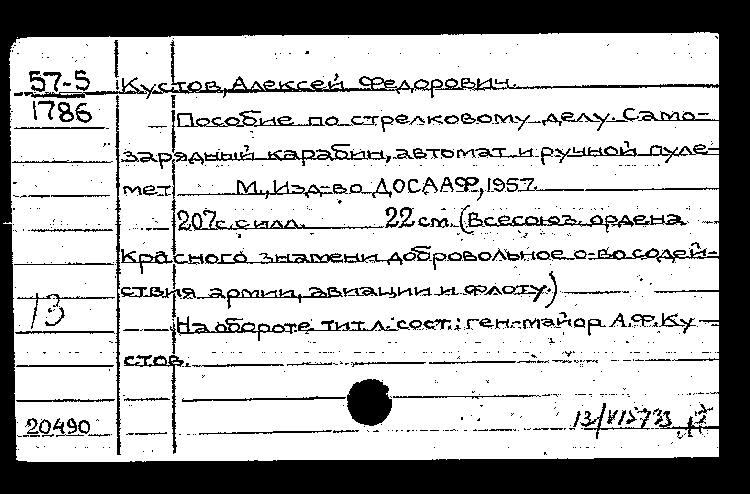 57-5 Кустов, Алексей Федорович.
1786 Пособие по стрелковому делу. Само-
зарядный карабин, автомат и ручной пуле-
мет М., Изд-во ДОСААФ, 1957.
207с. с илл. 22 см. (Всесоюз. ордена
Красного знамени добровольное о-во содей-
ствия армии, авиации и флоту.)
13
На обороте тит. л. сост.: ген-майор А.Ф. Ку
стов.
20490